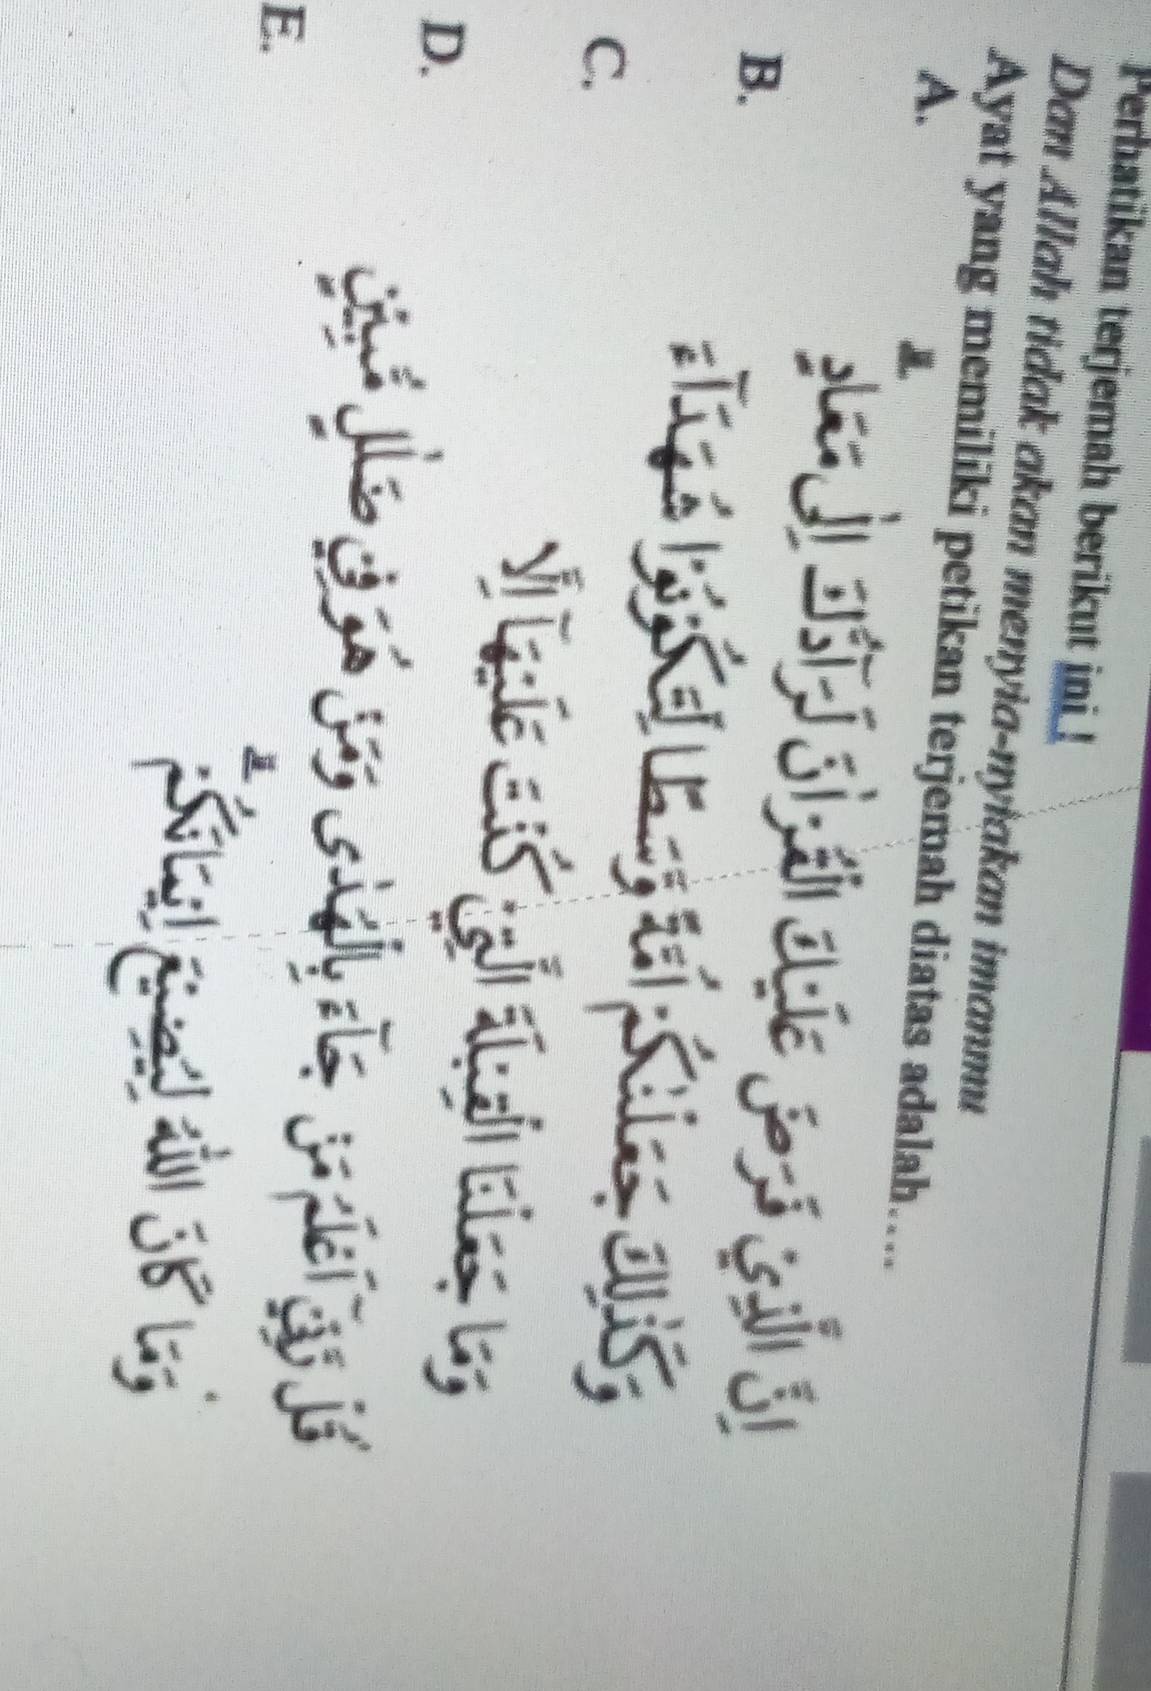 Perhatikan terjemah berikut ini !
Dan Allah tidak akan menyia-nyiakan imanmu
Ayat yang memiliki petikan terjemah diatas adalah....
A.
اِنَّ الَّذِيْ فَرَضَ عَلَيْكَ الْقُرْاٰنَ لَرَاۤدُّكَ اِلٰى مَعَادٍ ۗ
B.
وَكَذٰلِكَ جَعَلْنٰكُمْ اُمَّةً وَّسَطًا لِّتَكُوْنُوْا شُهَدَاۤءَ
C.
وَمَا جَعَلْنَا الْقِبْلَةَ الَّتِيْ كُنْتَ عَلَيْهَآ اِلَّا
D.
قُلْ رَّبِّيْٓ اَعْلَمُ مَنْ جَاۤءَ بِالْهُدٰى وَمَنْ هُوَ فِيْ ضَلٰلٍ مُّبِيْنٍ
E.
وَمَا كَانَ اللّٰهُ لِيُضِيْعَ اِيْمَانَكُمْ ۗ